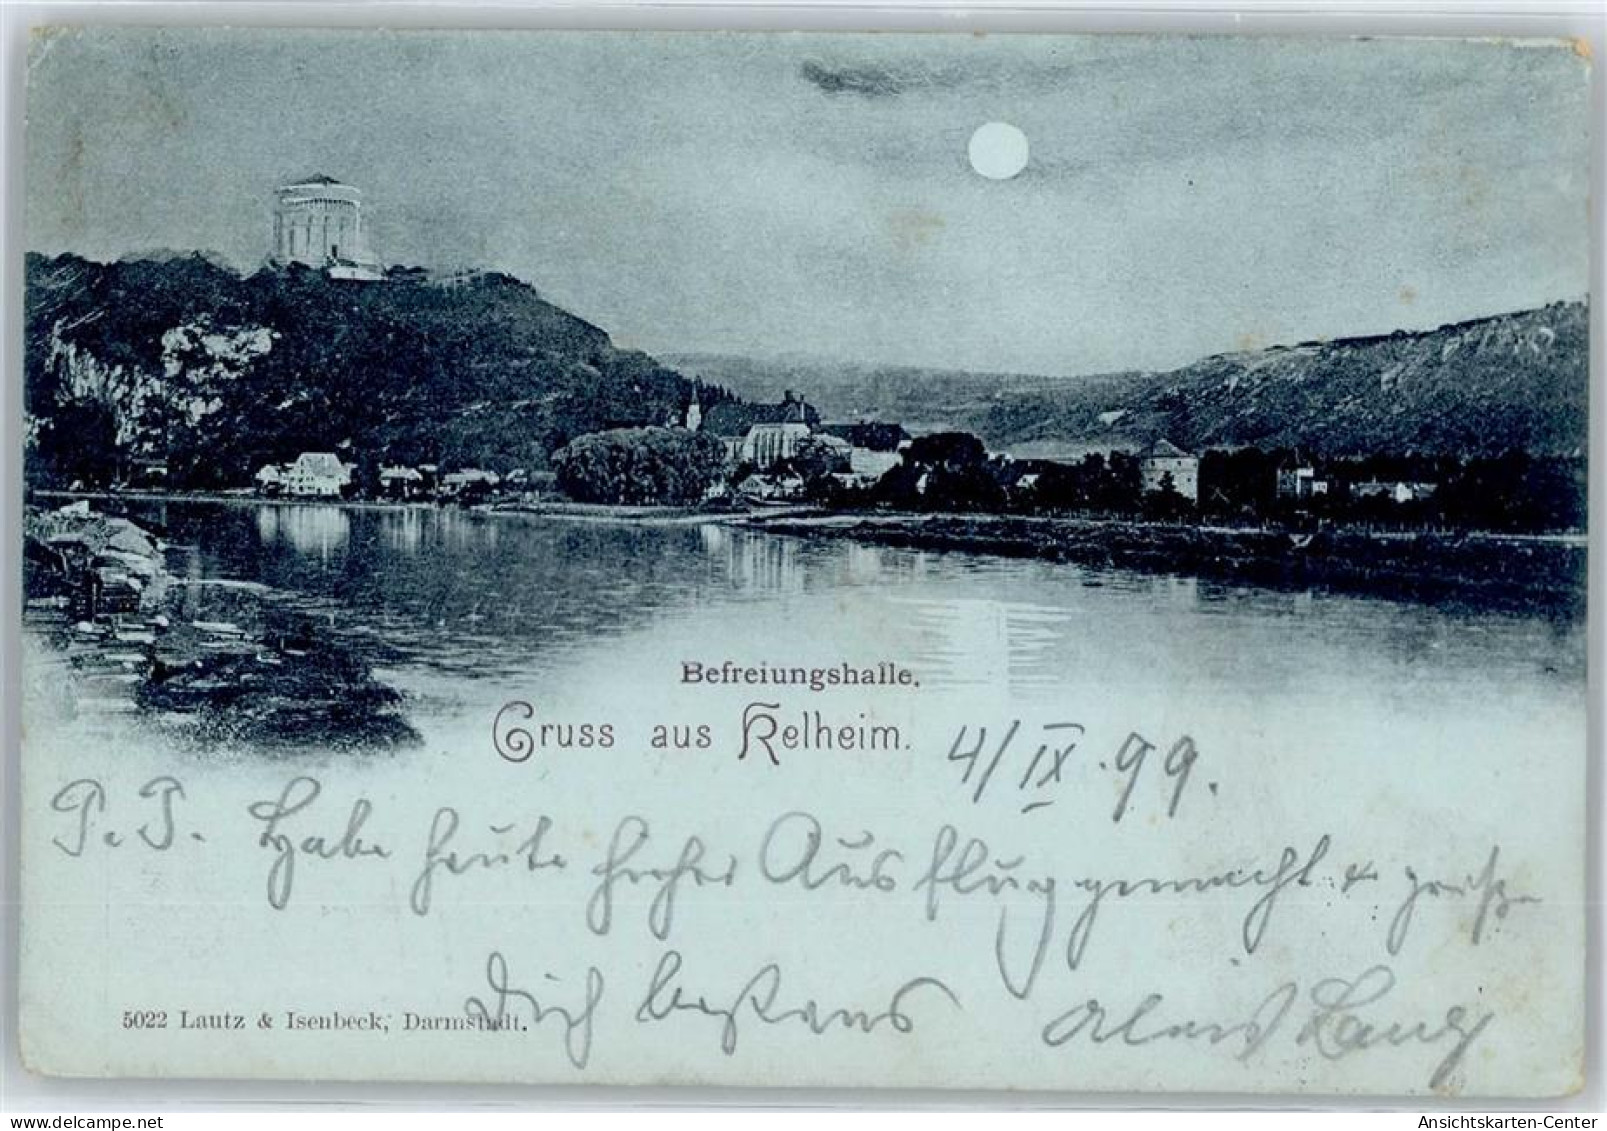 Befreiungshalle.
Gruss aus Kelheim.
4/IX.99.
P. P. Habe heute hierher Ausflug gemacht & grüße
Dich bestens Alois Lang
5022 Lautz & Isenbeck, Darmstadt.
www.delcampe.net
Ansichtskarten-Center